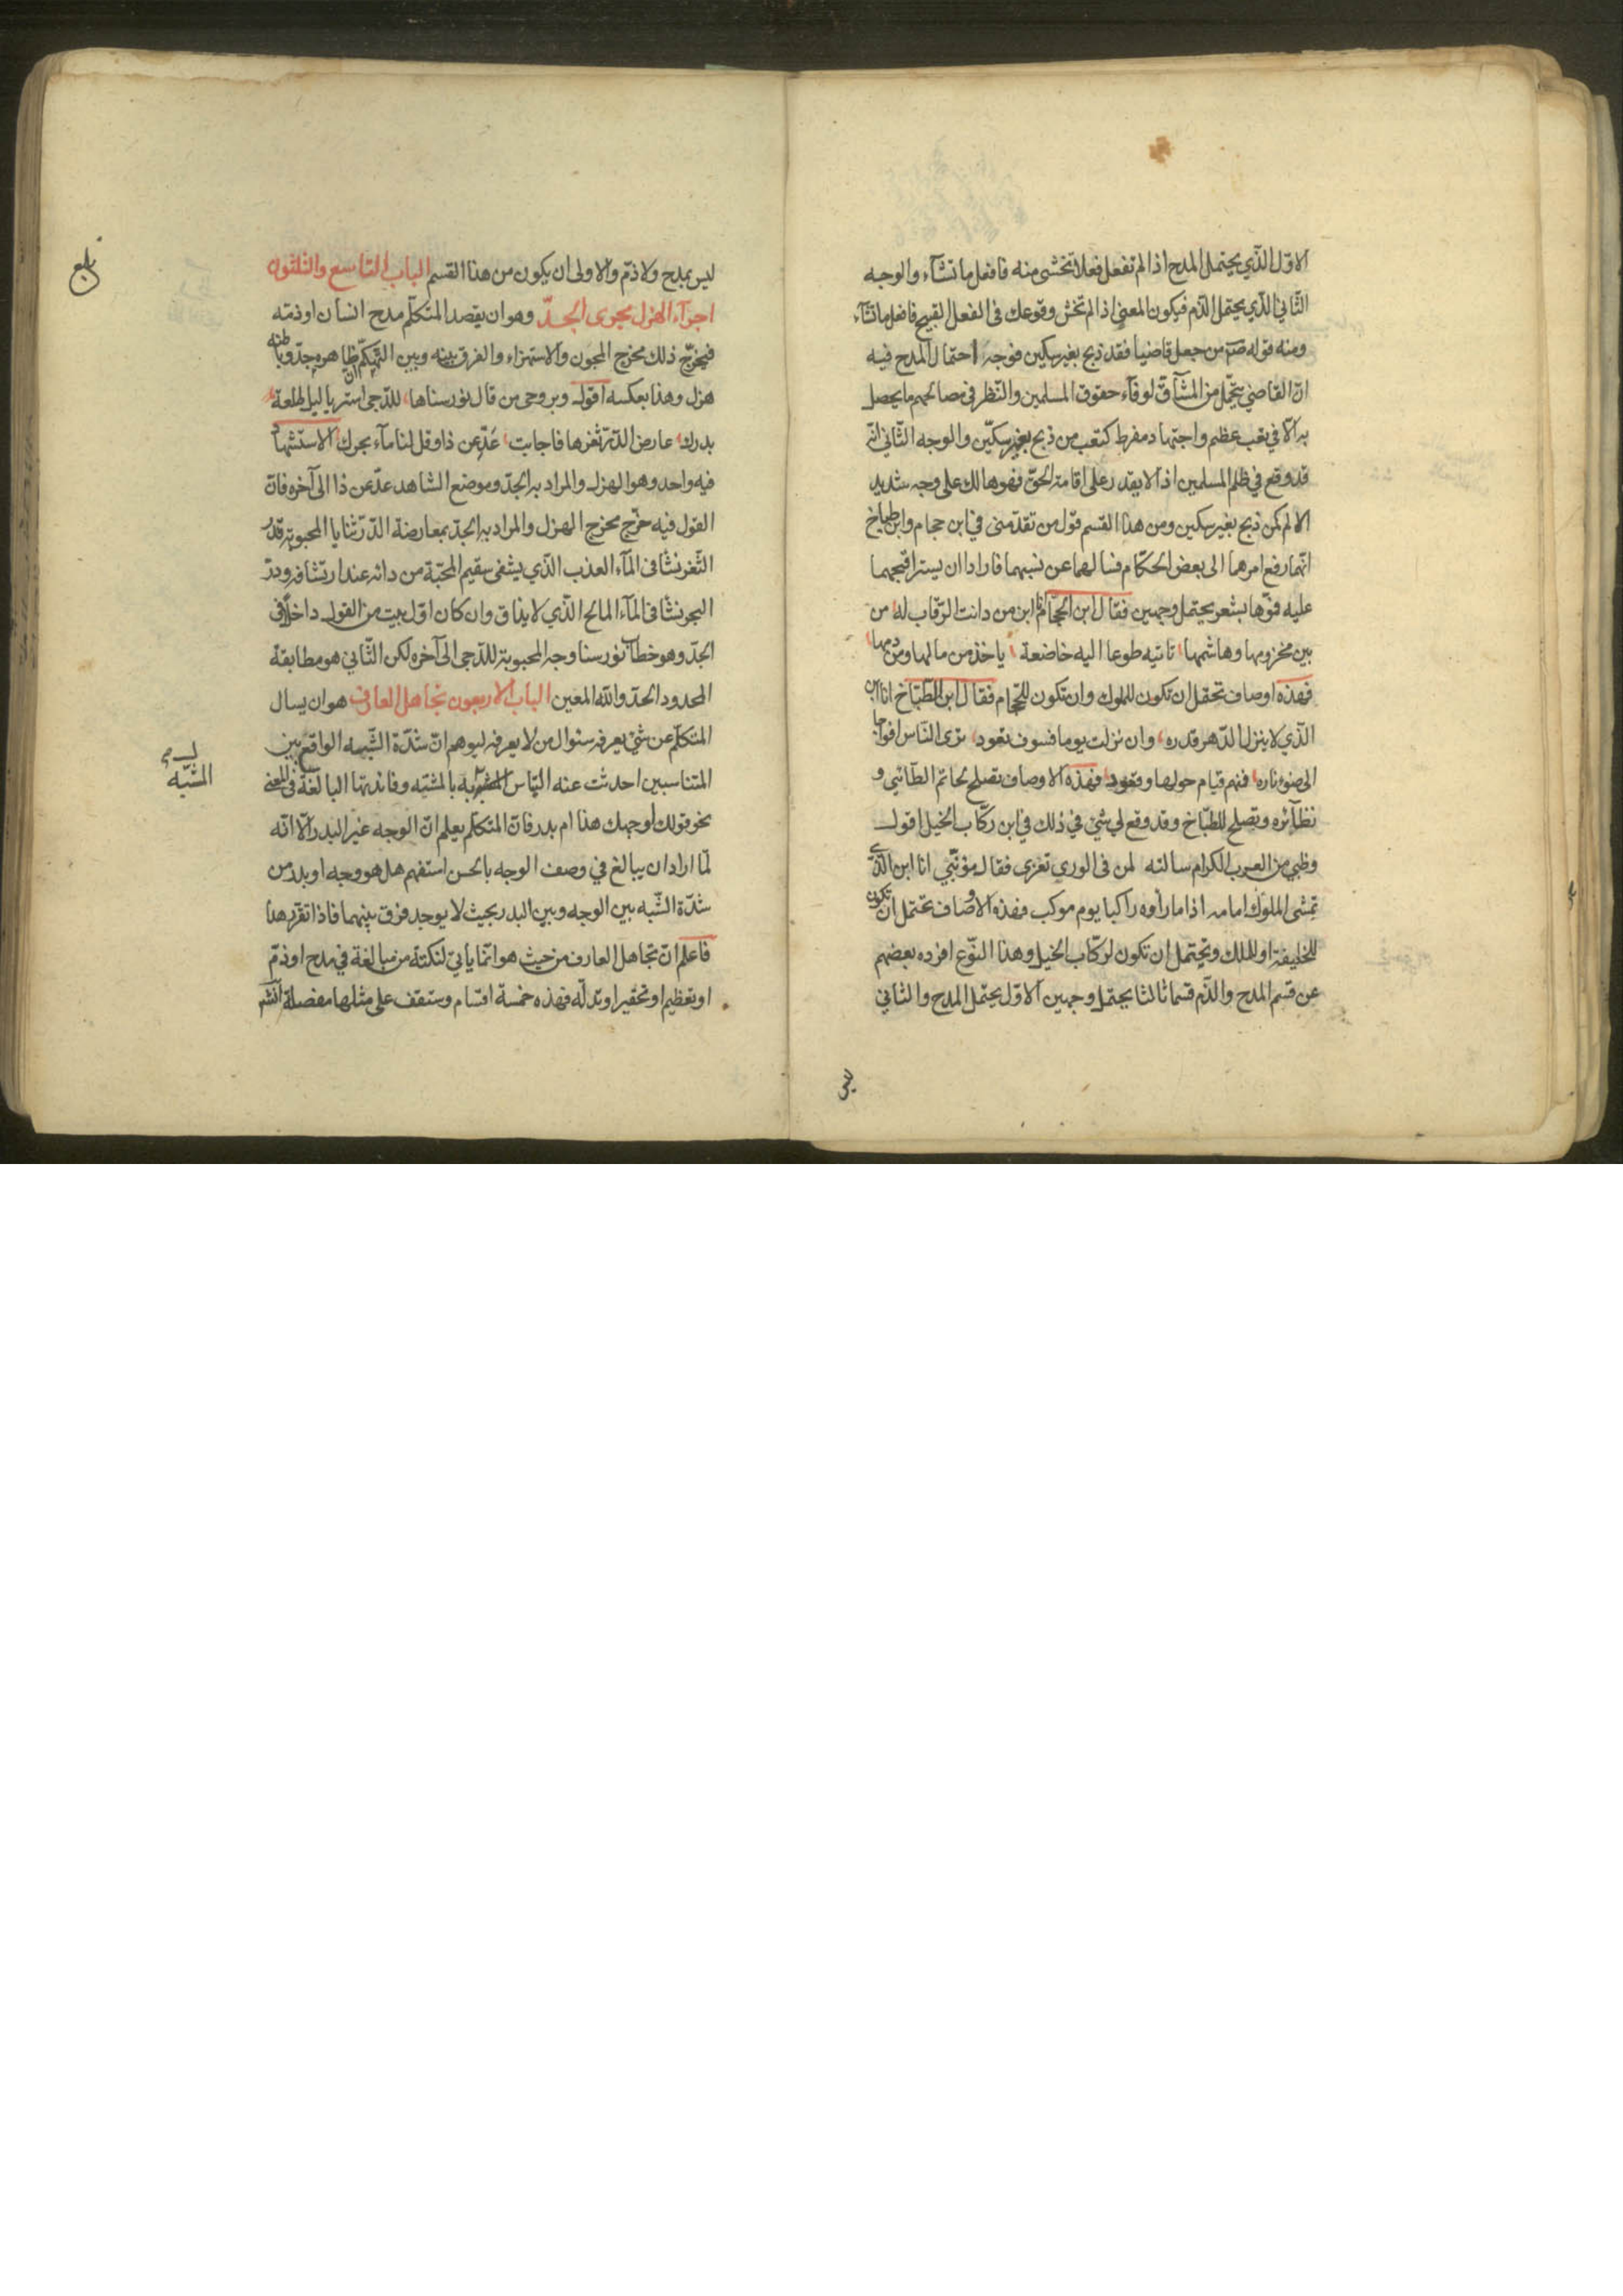 الاوّل الّذي يحتمل المدح اذا لم تفعل فعلا تخشى منه فافعل ما تشآء والوجه
الثّاني الّذي يحتمل الذّم فيكون المعنى اذا لم تخش وقوعك فى الفعل القبيح فافعل ما تشآء
ومنه قوله صلّم من جعل قاضيا فقد ذبح بغير سكين فوجه احتمال المدح فيه
انّ القاضي يتحمّل من المشآقّ لوفآء حقوق المسلمين والنّظر فى مصالحهم ما يحصل
به الّا في تعب عظيم واجتهاد مفرط كتعب من ذبح بغير سكّين والوجه الثّاني انّه
قد وقع في ظلم المسلمين اذ لا يقدر على اقامة الحقّ فهو هالك على وجه شديد
الالم كمن ذبح بغير سكين ومن هذا القسم قول من تقدّمنى في ابن حجام وابن طباخ
انّهما رفع امرهما الى بعض الحكّام فسالهما عن نسبهما فارادا ان يسترا قبحهما
عليه فوّها بشعر يحتمل وجهين فقال ابن الحجّام انا ابن من دانت الرّقاب له من
بين مخزومها وهاشمها تاتيه طوعا اليه خاضعة ياخذ من مالها ومن دمها
فهذه اوصاف تحتمل ان تكون للملوك وان تكون للحّجام فقال ابن الطّبّاخ انا ابن
الّذي لا ينزل الدّهر قدره وان نزلت يوما فسوف تعود ترى النّاس افواجا
الى ضوء ناره فمنهم قيام حولها وقعود فهذه الاوصاف تصلح لحاتم الطّائي و
نظآئره وتصلح للطبّاخ وقد وقع لي شئ في ذلك في ابن ركّاب الخيل اقول
وظبي من العرب الكرام سالته لمن فى الورى تعزى فقال مؤنّبي انا ابن الّذي
تمشى الملوك امامه اذا ما راوه راكبا يوم موكب فهذه الاوصاف تحتمل ان تكون
للخليفة او للملك ويحتمل ان تكون لركّاب الخيل وهذا النّوع افرده بعضهم
عن قسم المدح والذّم قسما ثالثا يحتمل وجهين الاوّل يحتمل المدح والثاني
ليس
ليس بمدح ولا ذمّ والاولى ان يكون من هذا القسم الباب التاسع والثلثون
اجرآء الهزل مجرى الجدّ وهو ان يقصد المتكلّم مدح انسان او ذمّه
فيخرّج ذلك مخرج المجون والاستهزاء والفرق بينه وبين التّهكّم انّ ظاهره جدّ وباطنه
هزل وهذا بعكسه اقول وبروحى من قال نور سناها للدّجى استر يا ليل طلعة
بدرك عارض الدّرّ ثغرها فاجابت عدّ عن ذا وقل لنا مآء بحرك الاستشهاد
فيه واحد وهو الهزل والمراد به الجدّ وموضع الشاهد عدّ عن ذا الى آخره فانّ
القول فيه خرّج مخرج الهزل والمراد به الجدّ بمعارضة الدّرّ ثنايا المحبوبة فدرّ
الثّغر نشأ فى المآء العذب الّذي يشفى سقيم المحبّة من دائه عند ارتشافه ودرّ
البحر نشأ فى المآء المالح الّذي لا يذاق وان كان اوّل بيت من القول داخلا فى
الجدّ وهو خطاب نور سنا وجه المحبوبة للدّجى الى آخره لكن الثّاني هو مطابقة
المحدود الحدّ والله المعين الباب الاربعون تجاهل العارف هو ان يسال
المتكلّم عن شئ يعرفه سئوال من لا يعرفه ليوهم انّ شدّة الشّبه الواقع بين
المتناسبين احدثت عنه التباس المشبه به بالمشبّه وفائدتها المبالغة فى المعنى
نحو قولك اوجهك هذا ام بدر فانّ المتكلّم يعلم انّ الوجه غير البدر الّا انّه
لمّا اراد ان يبالغ في وصف الوجه بالحسن استفهم هل هو وجه او بدر من
شدّة الشّبه بين الوجه وبين البدر بحيث لا يوجد فرق بينهما فاذا تقرّر هذا
فاعلم انّ تجاهل العارف من حيث هو انّما ياتي لنكتة من مبالغة في مدح او ذمّ
او تعظيم او تحقير او تدلّه فهذه خمسة اقسام وستقف على مثلها مفصلة
بلغ
المشبّه